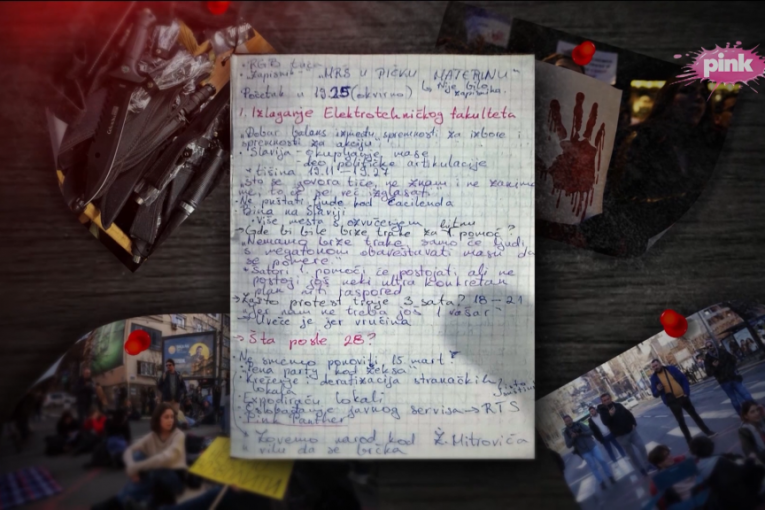 pink
"MRŠ U PIČKU MATERINU"
Početak u 19:25 (okvirno)
1. Izlaganje Elektrotehničkog fakulteta
Dobar balans između spremnosti za izbore i
spremnosti za akciju
Slavija - okupljanje mase
deo političke artikulacije
tišina 19.11 – 19.27
Što se govora tiče, ne znam i ne zanima
me, to će se već izglasati
Ne puštati ljude kod Ćacilenda
Bina na Slaviji
Više mesta s ozvučenjem bitno
→ Gde bi bile brze trake za 1. pomoć?
"Nemamo brze trake, samo će ljudi
s megafonom obaveštavati masu da
se pomere."
Šatori 1. pomoći će postojati ali ne
postoji još neki ultra konkretan
plan niti raspored
→ Zašto protest traje 3 sata? 18 – 21
Jer nam ne treba još 1 vašar
→ Uveče je jer vrućina
→ Šta posle 28?
Ne smemo ponoviti 15. mart!
"Pena party kod Žeksa"
Krečenje, deratizacija stranačkih
lokala
Expodiraću lokali
Oslobađanje javnog servisa → RTS
Pink Panther
Zovemo narod kod Ž. Mitrovića
vilu da se brčka